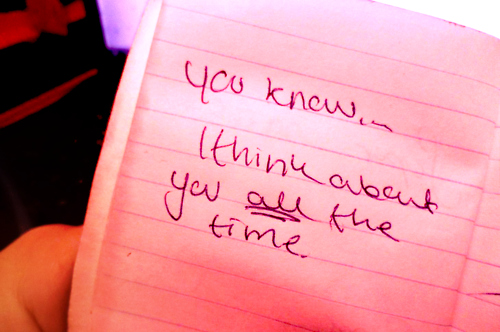 you know...
I think about
you all the
time.